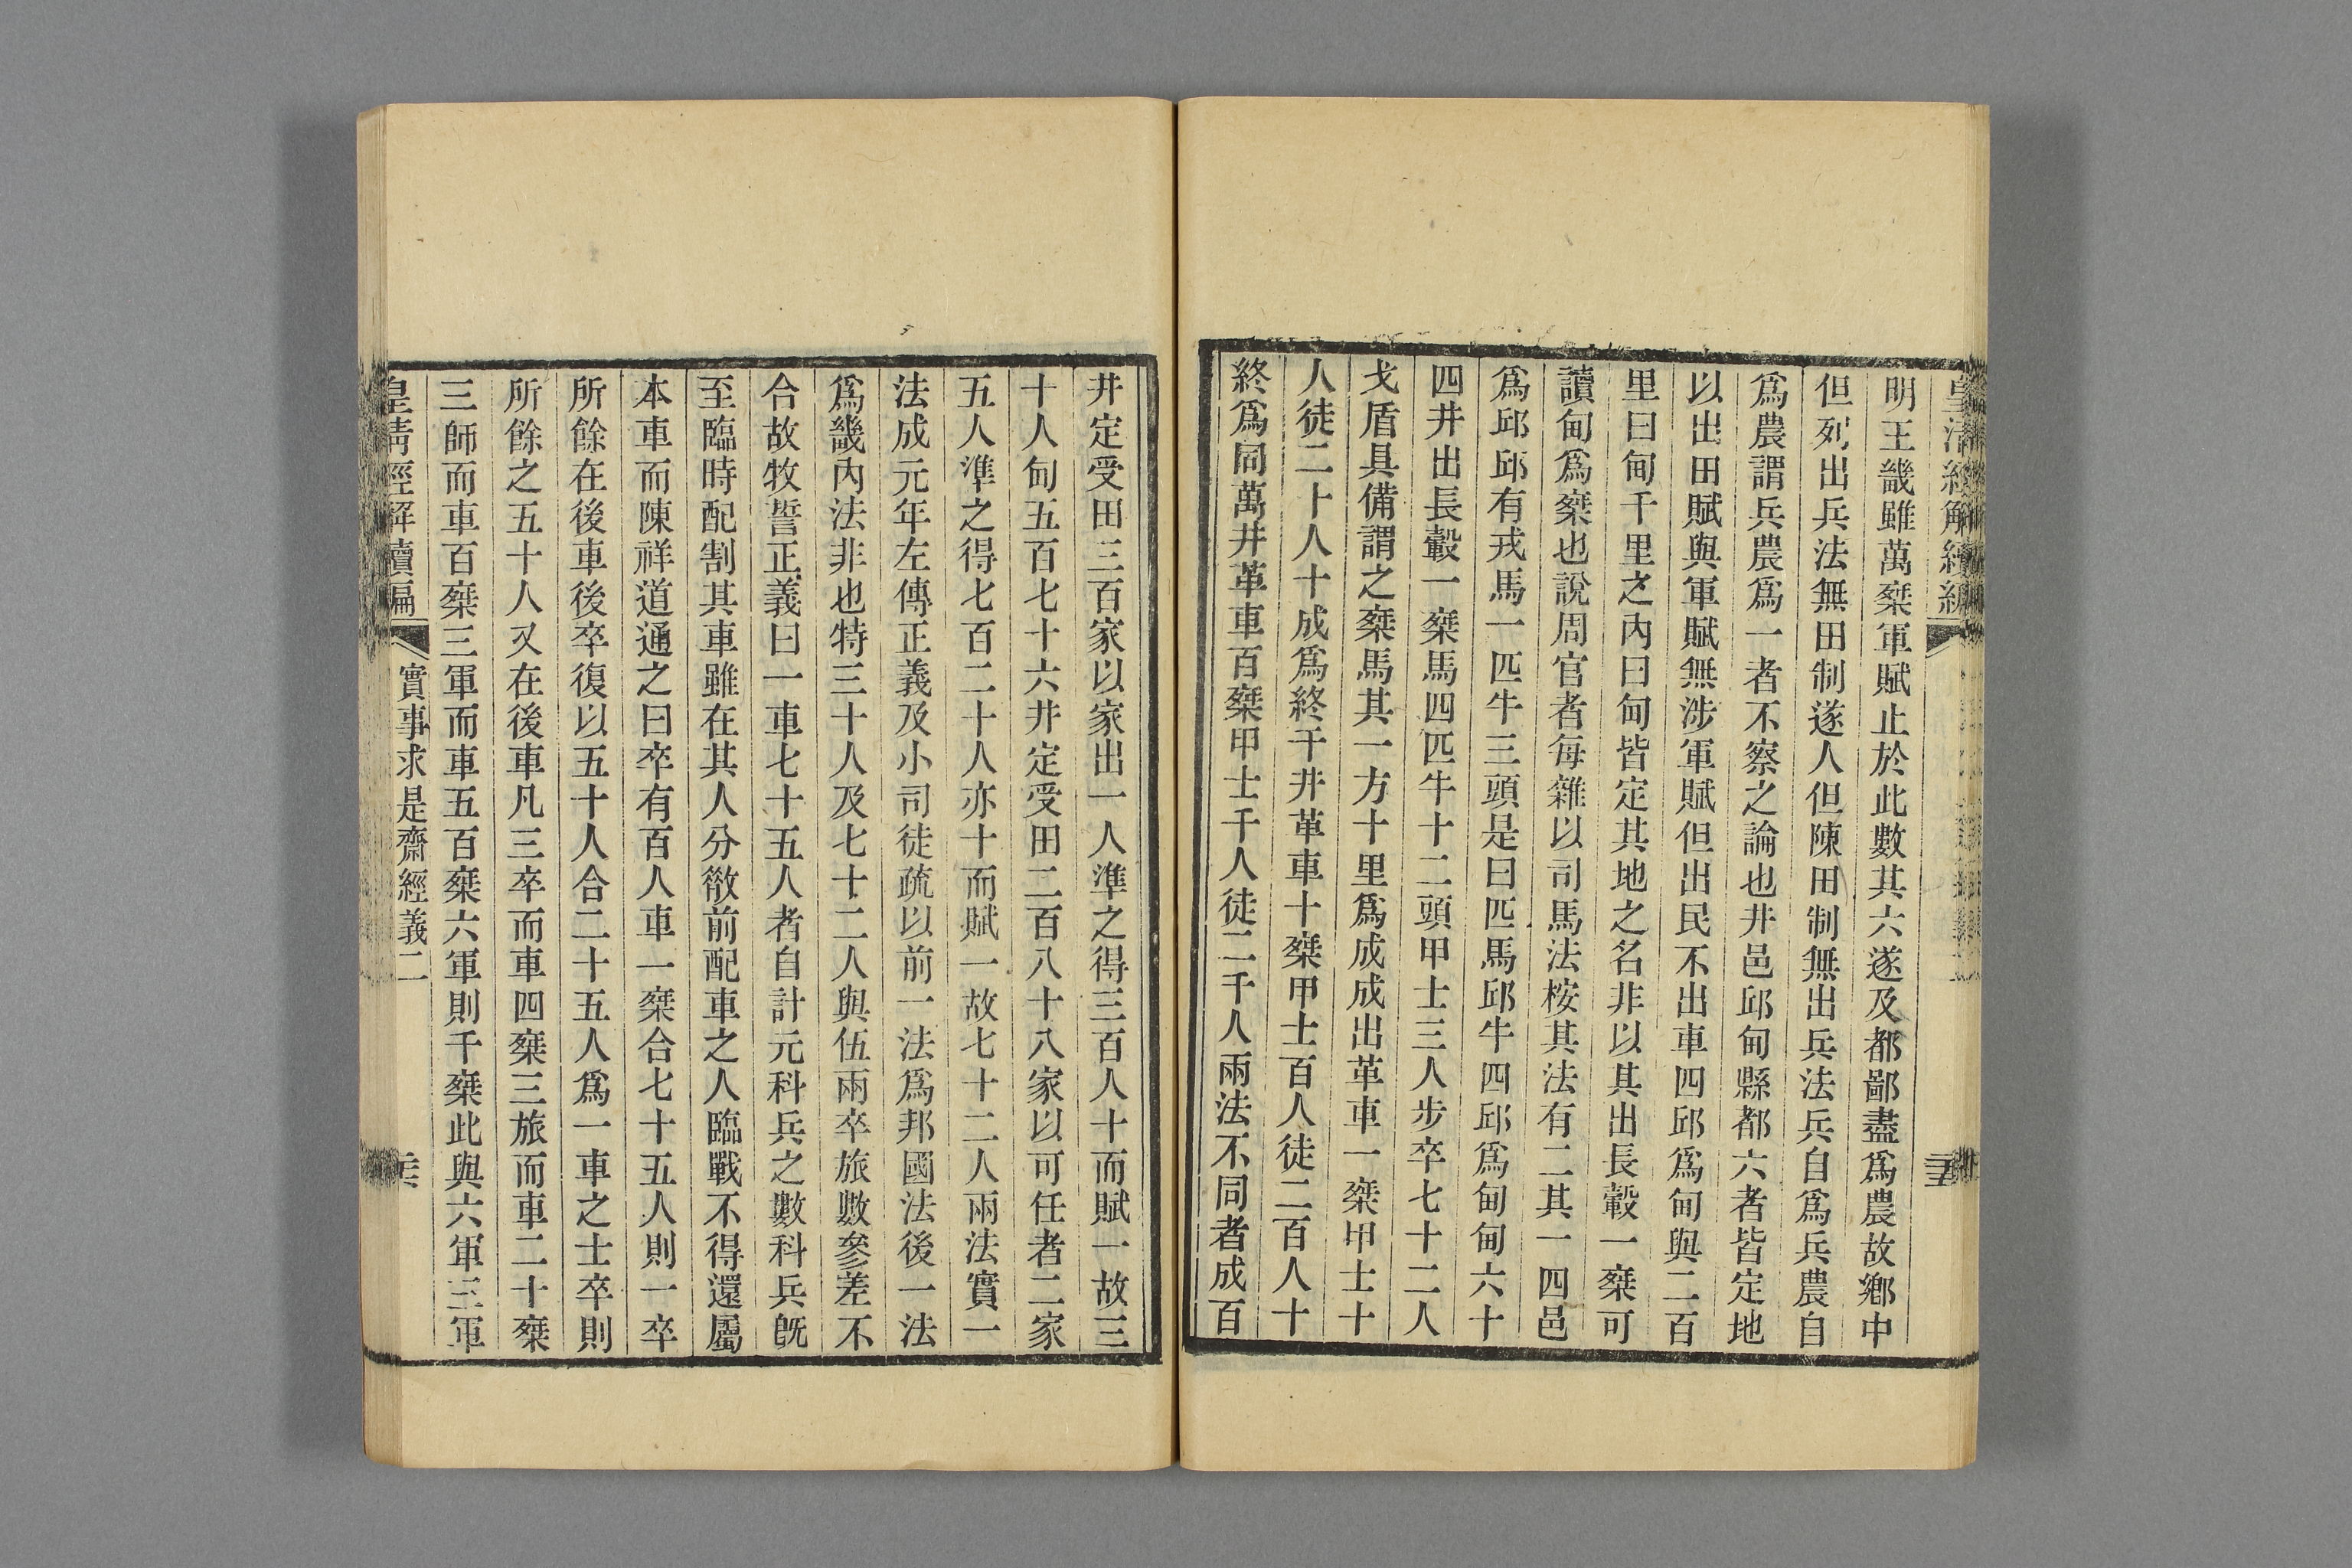 皇清經解續編
明王畿雖萬椉軍賦止於此數其六遂及都鄙盡爲農故鄉中
但列出兵法無田制遂人但陳田制無出兵法兵自爲兵農自
爲農謂兵農爲一者不察之論也井邑邱甸縣都六者皆定地
以出田賦與軍賦無涉軍賦但出民不出車四邱爲甸與二百
里曰甸千里之內曰甸皆定其地之名非以其出長轂一椉可
讀甸爲椉也說周官者每雜以司馬法桉其法有二其一四邑
爲邱邱有戎馬一匹牛三頭是曰匹馬邱牛四邱爲甸甸六十
四井出長轂一椉馬四匹牛十二頭甲士三人步卒七十二人
戈盾具備謂之椉馬其一方十里爲成成出革車一椉甲士十
人徒二十人十成爲終千井革車十椉甲士百人徒二百人十
終爲同萬井革車百椉甲士千人徒二千人兩法不同者成百
井定受田三百家以家出一人準之得三百人十而賦一故三
十人甸五百七十六井定受田二百八十八家以可任者二家
五人準之得七百二十人亦十而賦一故七十二人兩法實一
法成元年左傳正義及小司徒疏以前一法爲邦國法後一法
爲畿內法非也特三十人及七十二人與伍兩卒旅數參差不
合故牧誓正義曰一車七十五人者自計元科兵之數科兵旣
至臨時配割其車雖在其人分散前配車之人臨戰不得還屬
本車而陳祥道通之曰卒有百人車一椉合七十五人則一卒
所餘在後車後卒復以五十人合二十五人爲一車之士卒則
所餘之五十人又在後車凡三卒而車四椉三旅而車二十椉
三師而車百椉三軍而車五百椉六軍則千椉此與六軍三軍
皇清經解續編 實事求是齋經義二